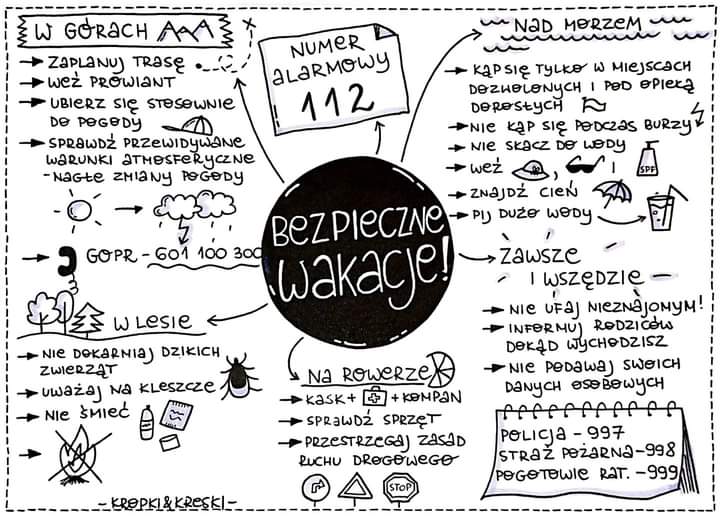 W GÓRACH
→ ZAPLANUJ TRASĘ
→ WEŹ PROWIANT
→ UBIERZ SIĘ STOSOWNIE
DO POGODY
→ SPRAWDŹ PRZEWIDYWANE
WARUNKI ATMOSFERYCZNE
- NAGŁE ZMIANY POGODY
→ GOPR - 601 100 300
NUMER
ALARMOWY
112
NAD MORZEM
→ KĄP SIĘ TYLKO W MIEJSCACH
DOZWOLONYCH I POD OPIEKĄ
DOROSŁYCH
→ NIE KĄP SIĘ PODCZAS BURZY
→ NIE SKACZ DO WODY
→ WEŹ , i
SPF
→ ZNAJDŹ CIEŃ
→ PIJ DUŻO WODY
BEZPIECZNE
WAKACJE!
W LESIE
→ NIE DOKARMIAJ DZIKICH
ZWIERZĄT
→ UWAŻAJ NA KLESZCZE
→ NIE ŚMIEĆ
NA ROWERZE
→ KASK + + KOMPAN
→ SPRAWDŹ SPRZĘT
→ PRZESTRZEGAJ ZASAD
RUCHU DROGOWEGO
STOP
ZAWSZE
I WSZĘDZIE
→ NIE UFAJ NIEZNAJOMYM!
→ INFORMUJ RODZICÓW
DOKĄD WYCHODZISZ
→ NIE PODAWAJ SWOICH
DANYCH OSOBOWYCH
POLICJA - 997
STRAŻ POŻARNA - 998
POGOTOWIE RAT. - 999
- KROPKI&KRESKI -